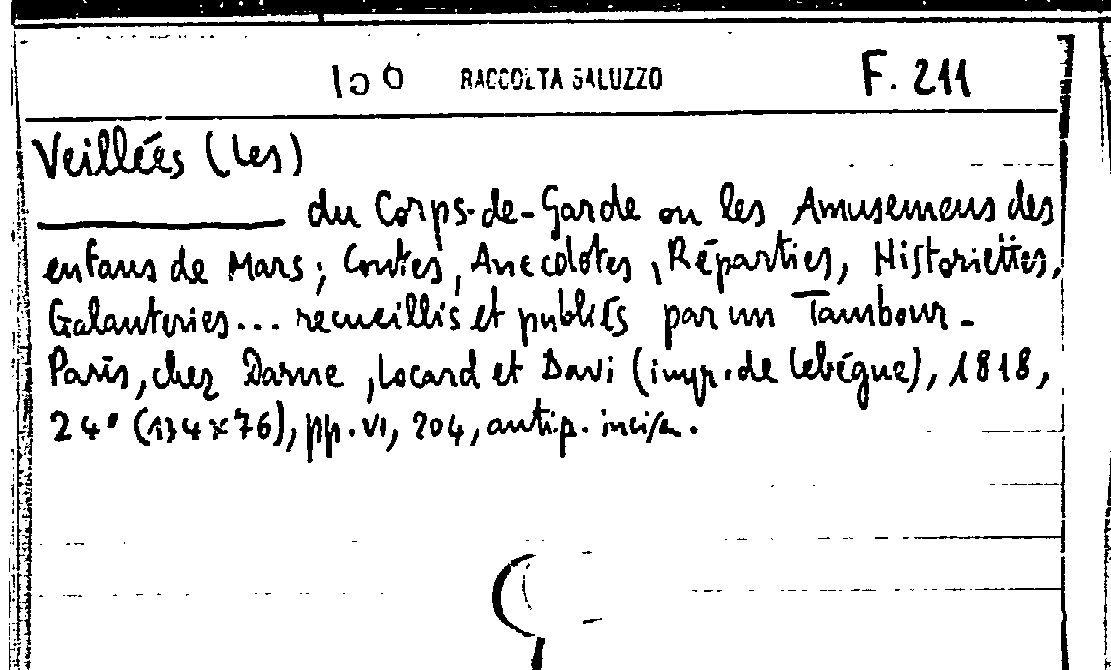 100 RACCOLTA SALUZZO F. 211
Veillées (Les)
du Corps-de-Garde ou les Amusemens des
enfans de Mars; Contes, Anecdotes, Réparties, Historiettes,
Galanteries... recueillis et publiés par un Tambour -
Paris, chez Darne, Locard et Davi (impr. de Lebégue), 1818,
24° (134x76), pp. VI, 204, antip. incisa.